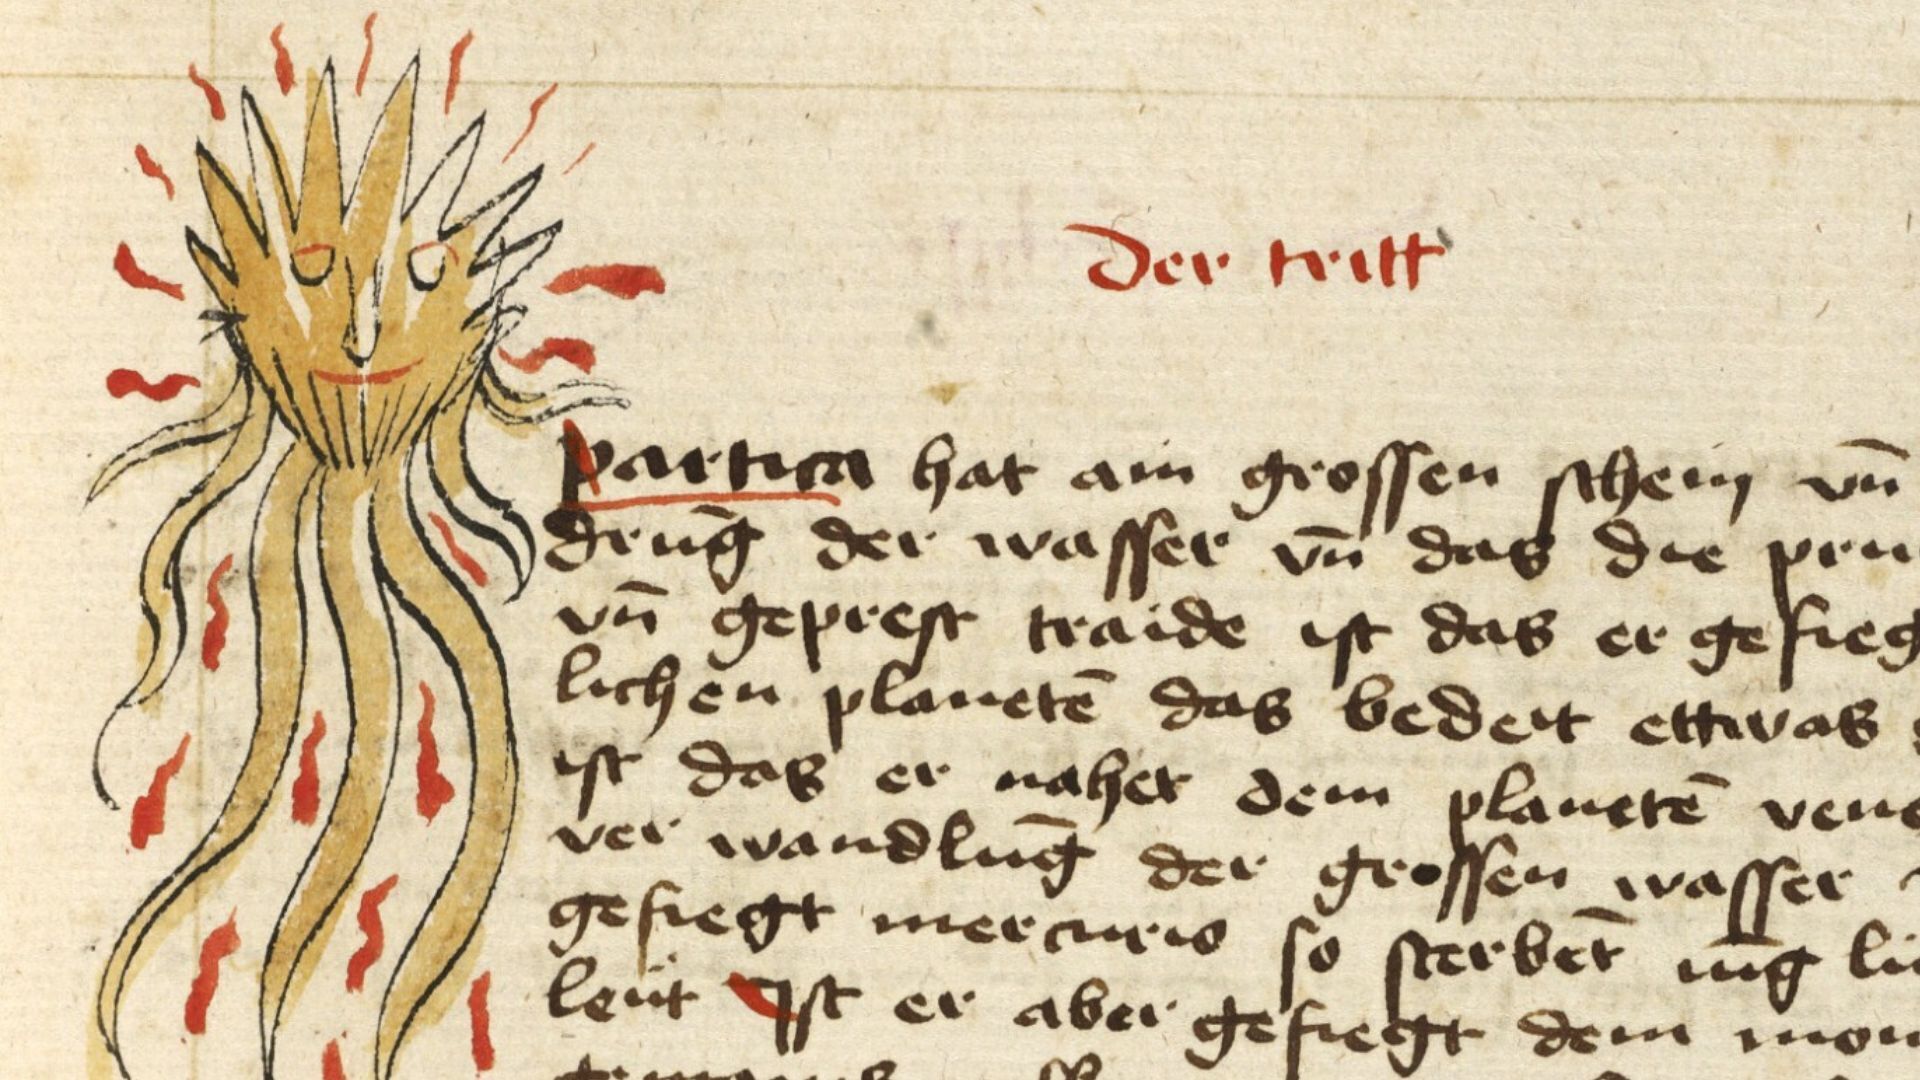 Der tritt
Partica hat ain grossen schein vn̄
drūg der wasser vn̄ das die pru
vn̄ geprest traide ist das er gefieg
lichen planetē das bedeit ettwas
ist das er nahet dem planetē vene
ver wandlūg der grossen wasser
gefiegt mercurio so sterbēt iūg
leüt Ist er aber gefiegt dem mon